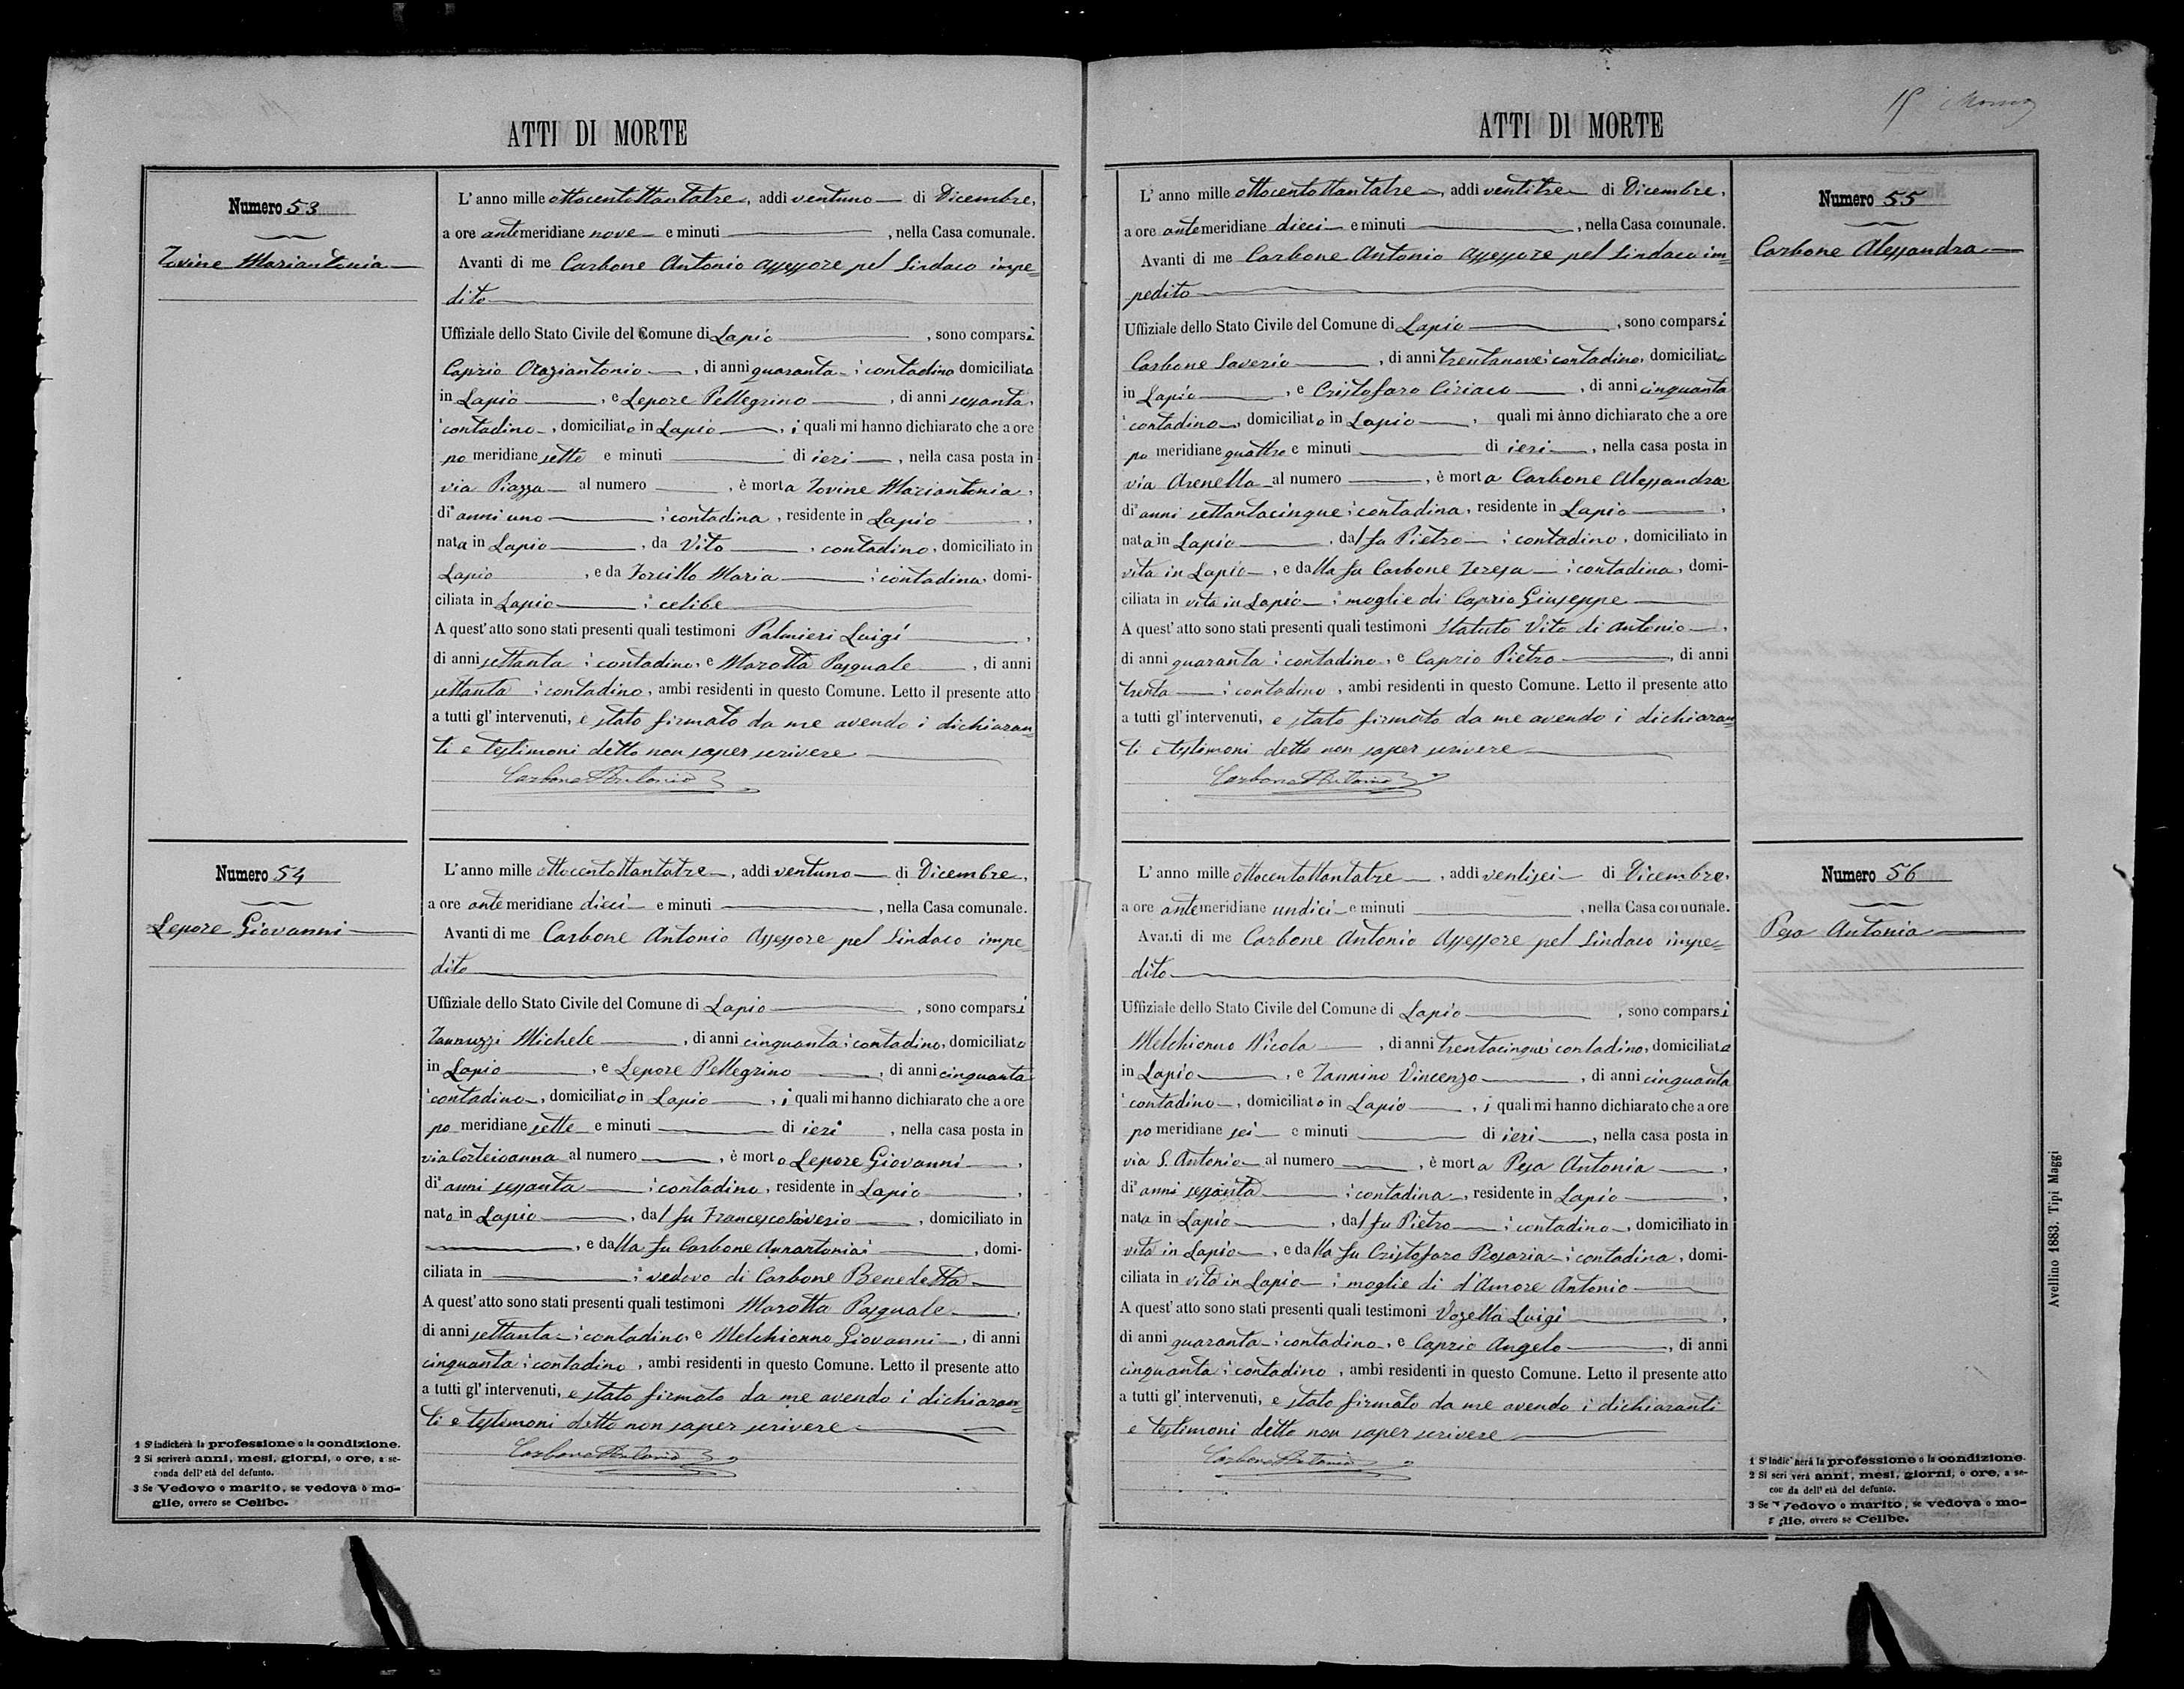 ATTI DI MORTE
Numero 53
Iovine Mariantonia
L' anno mille ottocentottantatre, addi ventuno di Dicembre,
a ore antemeridiane nove e minuti , nella Casa comunale.
Avanti di me Carbone Antonio Assessore pel Sindaco impe=
dito
Uffiziale dello Stato Civile del Comune di Lapio , sono comparsi
Caprio Oraziantonio , di anni quaranta contadino domiciliato
in Lapio , e Lepore Pellegrino , di anni sessanta,
contadino , domiciliato in Lapio , i quali mi hanno dichiarato che a ore
po meridiane sette e minuti di ieri , nella casa posta in
via Piazza al numero , è morta Iovine Mariantonia,
di anni uno contadina, residente in Lapio ,
nata in Lapio , da Vito , contadino, domiciliato in
Lapio , e da Forcillo Maria contadina, domi-
ciliata in Lapio celibe
A quest' atto sono stati presenti quali testimoni Palmieri Luigi ,
di anni settanta contadino, e Marotta Pasquale , di anni
settanta contadino, ambi residenti in questo Comune. Letto il presente atto
a tutti gl' intervenuti, e stato firmato da me avendo i dichiaran=
ti e testimoni detto non saper scrivere
Carbone Antonio
Numero 54
Lepore Giovanni
L' anno mille ottocentottantatre, addi ventuno di Dicembre,
a ore antemeridiane dieci e minuti , nella Casa comunale.
Avanti di me Carbone Antonio Assessore pel Sindaco impe=
dito
Uffiziale dello Stato Civile del Comune di Lapio , sono comparsi
Iannuzzi Michele , di anni cinquanta contadino, domiciliato
in Lapio , e Lepore Pellegrino , di anni cinquanta
contadino , domiciliato in Lapio , i quali mi hanno dichiarato che a ore
po meridiane sette e minuti di ieri , nella casa posta in
via al numero , è morto Lepore Giovanni ,
di anni sessanta contadino, residente in Lapio ,
nato in Lapio , dal fu Francescosaverio , domiciliato in
, e dalla fu Carbone Annantonia , domi-
ciliata in vedovo di Carbone Benedetta
A quest' atto sono stati presenti quali testimoni Marotta Pasquale ,
di anni settanta contadino, e Melchionno Giovanni , di anni
cinquanta contadino , ambi residenti in questo Comune. Letto il presente atto
a tutti gl' intervenuti, e stato firmato da me avendo i dichiaran=
ti e testimoni detto non saper scrivere
Carbone Antonio
1 S'indicherà la professione o la condizione.
2 Si scriverà anni, mesi, giorni, o ore, a se-
conda dell' età del defunto.
3 Se Vedovo o marito, se vedova o mo-
glie, ovvero se Celibe.
15
ATTI DI MORTE
Numero 55
Carbone Alessandra
L' anno mille ottocentottantatre , addi ventitre di Dicembre,
a ore antemeridiane dieci e minuti , nella Casa comunale.
Avanti di me Carbone Antonio Assessore pel Sindaco im=
pedito
Uffiziale dello Stato Civile del Comune di Lapio , sono comparsi
Carbone Saverio , di anni trentanove contadino, domiciliato
in Lapio , e Cristofaro Ciriaco , di anni cinquanta
contadino , domiciliato in Lapio , quali mi ànno dichiarato che a ore
po meridiane quattro e minuti di ieri , nella casa posta in
via Arenella al numero , è morta Carbone Alessandra
di anni settantacinque contadina, residente in Lapio ,
nata in Lapio , dal fu Pietro contadino, domiciliato in
vita in Lapio , e dalla fu Carbone Teresa contadina, domi-
ciliata in vita in Lapio moglie di Caprio Giuseppe
A quest' atto sono stati presenti quali testimoni Statuto Vito di Antonio ,
di anni quaranta contadino, e Caprio Pietro , di anni
trenta contadino , ambi residenti in questo Comune. Letto il presente atto
a tutti gl' intervenuti, e stato firmato da me avendo i dichiaran=
ti e testimoni detto non saper scrivere
Carbone Antonio
Numero 56
Pesa Antonia
L' anno mille ottocentottantatre , addi ventisei di Dicembre,
a ore antemeridiane undici e minuti , nella Casa comunale.
Avanti di me Carbone Antonio Assessore pel Sindaco impe=
dito
Uffiziale dello Stato Civile del Comune di Lapio , sono comparsi
Melchionno Nicola , di anni trentacinque contadino, domiciliato
in Lapio , e Iannino Vincenzo , di anni cinquanta
contadino , domiciliato in Lapio , i quali mi hanno dichiarato che a ore
po meridiane sei e minuti di ieri , nella casa posta in
via S. Antonio al numero , è morta Pesa Antonia ,
di anni sessanta contadina , residente in Lapio ,
nata in Lapio , dal fu Pietro contadino , domiciliato in
vita in Lapio , e dalla fu Cristofaro Rosaria contadina, domi-
ciliata in vita in Lapio moglie di d'Amore Antonio
A quest' atto sono stati presenti quali testimoni Vozella Luigi ,
di anni quaranta contadino , e Caprio Angelo , di anni
cinquanta contadino , ambi residenti in questo Comune. Letto il presente atto
a tutti gl' intervenuti, e stato firmato da me avendo i dichiaranti
e testimoni detto non saper scrivere
Carbone Antonio
1 S'indicherà la professione o la condizione.
2 Si scriverà anni, mesi, giorni, o ore, a se-
conda dell' età del defunto.
3 Se Vedovo o marito, se vedova o mo-
glie, ovvero se Celibe.
Avellino 1883. Tipi Maggi